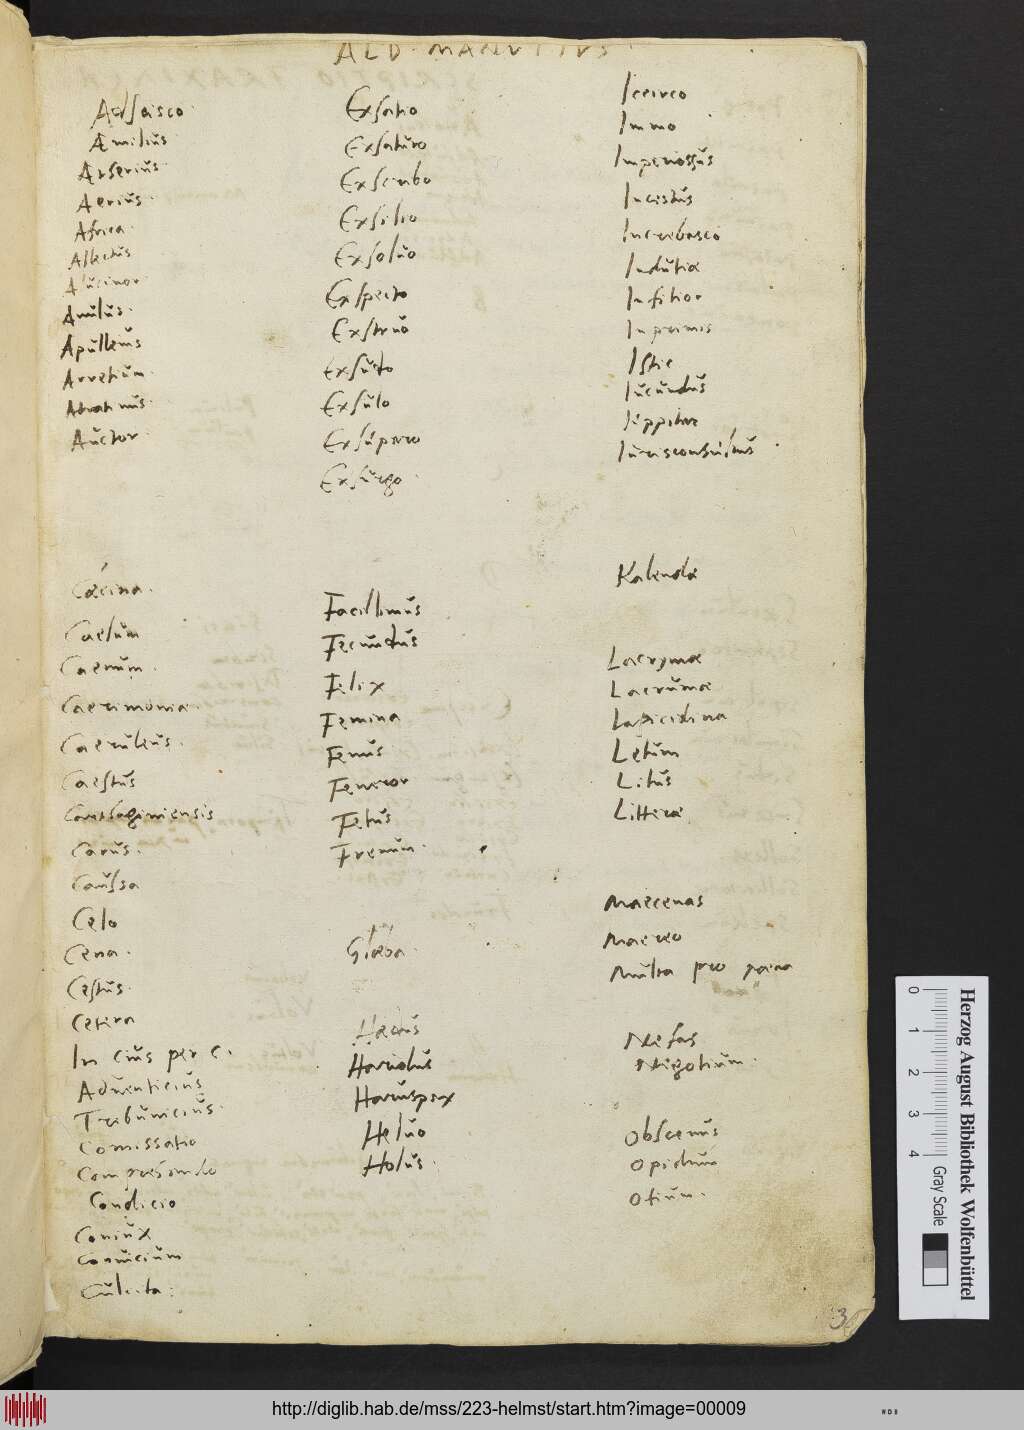 ALD. MANUTIUS.
Adscisco
Æmilius
Æserius
Aerius.
Africa.
Allectus
Alucinor
Anulus.
Apulleius
Arretium.
Atratinus.
Auctor.
Cæcina.
Caelum
Caenum.
Caerimonia.
Caeruleus.
Caestus
Carthaginiensis
Carus.
Caussa
Celo
Cena.
Cestus.
Cetera
In cius per c.
Adventicius
Tribunicius.
Comissatio
Comprehendo
Condicio
Coniux
Convicium
Culcita.
Exsatio
Exsaturo
Exscribo
Exsilio
Exsoluo
Exspecto
Exstruo
Exsucto
Exsulo
Exsupero
Exsurgo.
Facillimus
Fecundus
Felix
Femina
Fenus
Feneror
Fetus
Frenum.
Glæba.
Hædus
Hariolus
Haruspex
Heluo
Holus.
Iccirco
Immo
Imperiossus
Incestus
Increbesco
Indutiæ
Infitior
Inprimis
Istic
Iucundus
Iuppiter
Iurisconsultus.
Kalendæ
Lacrymæ
Lacrumæ
Lapicidina
Letum
Litus
Litteræ
Maecenas
Maereo
Multa pro pœna
Nefas
Negotium.
Obscenus
Opidum
Otium.
36
Herzog August Bibliothek Wolfenbüttel
0 1 2 3 4 Gray Scale
http://diglib.hab.de/mss/223-helmst/start.htm?image=00009
WDB